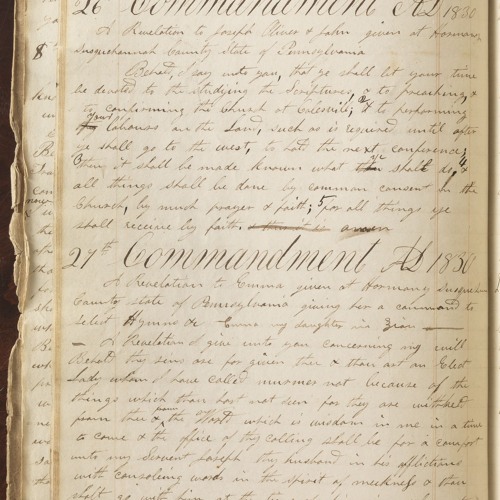 26 Commandment AD 1830
A Revelation to Joseph Oliver & John given at Harmony
Susquehannah County State of Pennsylvania
Behold, I say unto you, that ye shall let your time
be devoted to the studying the Scriptures, & to preaching, &
to confirming the Church at Colesville; 2 & to performing
thy your labours on the Land, such as is required until after
ye shall go to the west, to hold the next conference;
3 then it shall be made known what thou ye shall do; 4 &
all things shall be done by common consent in the
Church, by much prayer & faith; 5 for all things ye
shall receive by faith amen
27th Commandment AD 1830
A Revelation to Emma given at Harmony Susquehan
County state of Pennsylvania giving her a command to
Select Hymns &c Emma my daughter in Zion
A Revelation I give unto you concerning my will
Behold thy sins are for given thee & thou art an Elect
Lady whom I have called murmer not because of the
things which thou hast not seen for they are withheld
from thee & from the World which is wisdom in me in a time
to come & the office of thy calling shall be for a comfort
unto my Servent Joseph thy husband in his afflictions
with consoleing words in the spirit of meekness & thou
shalt go with him at the time